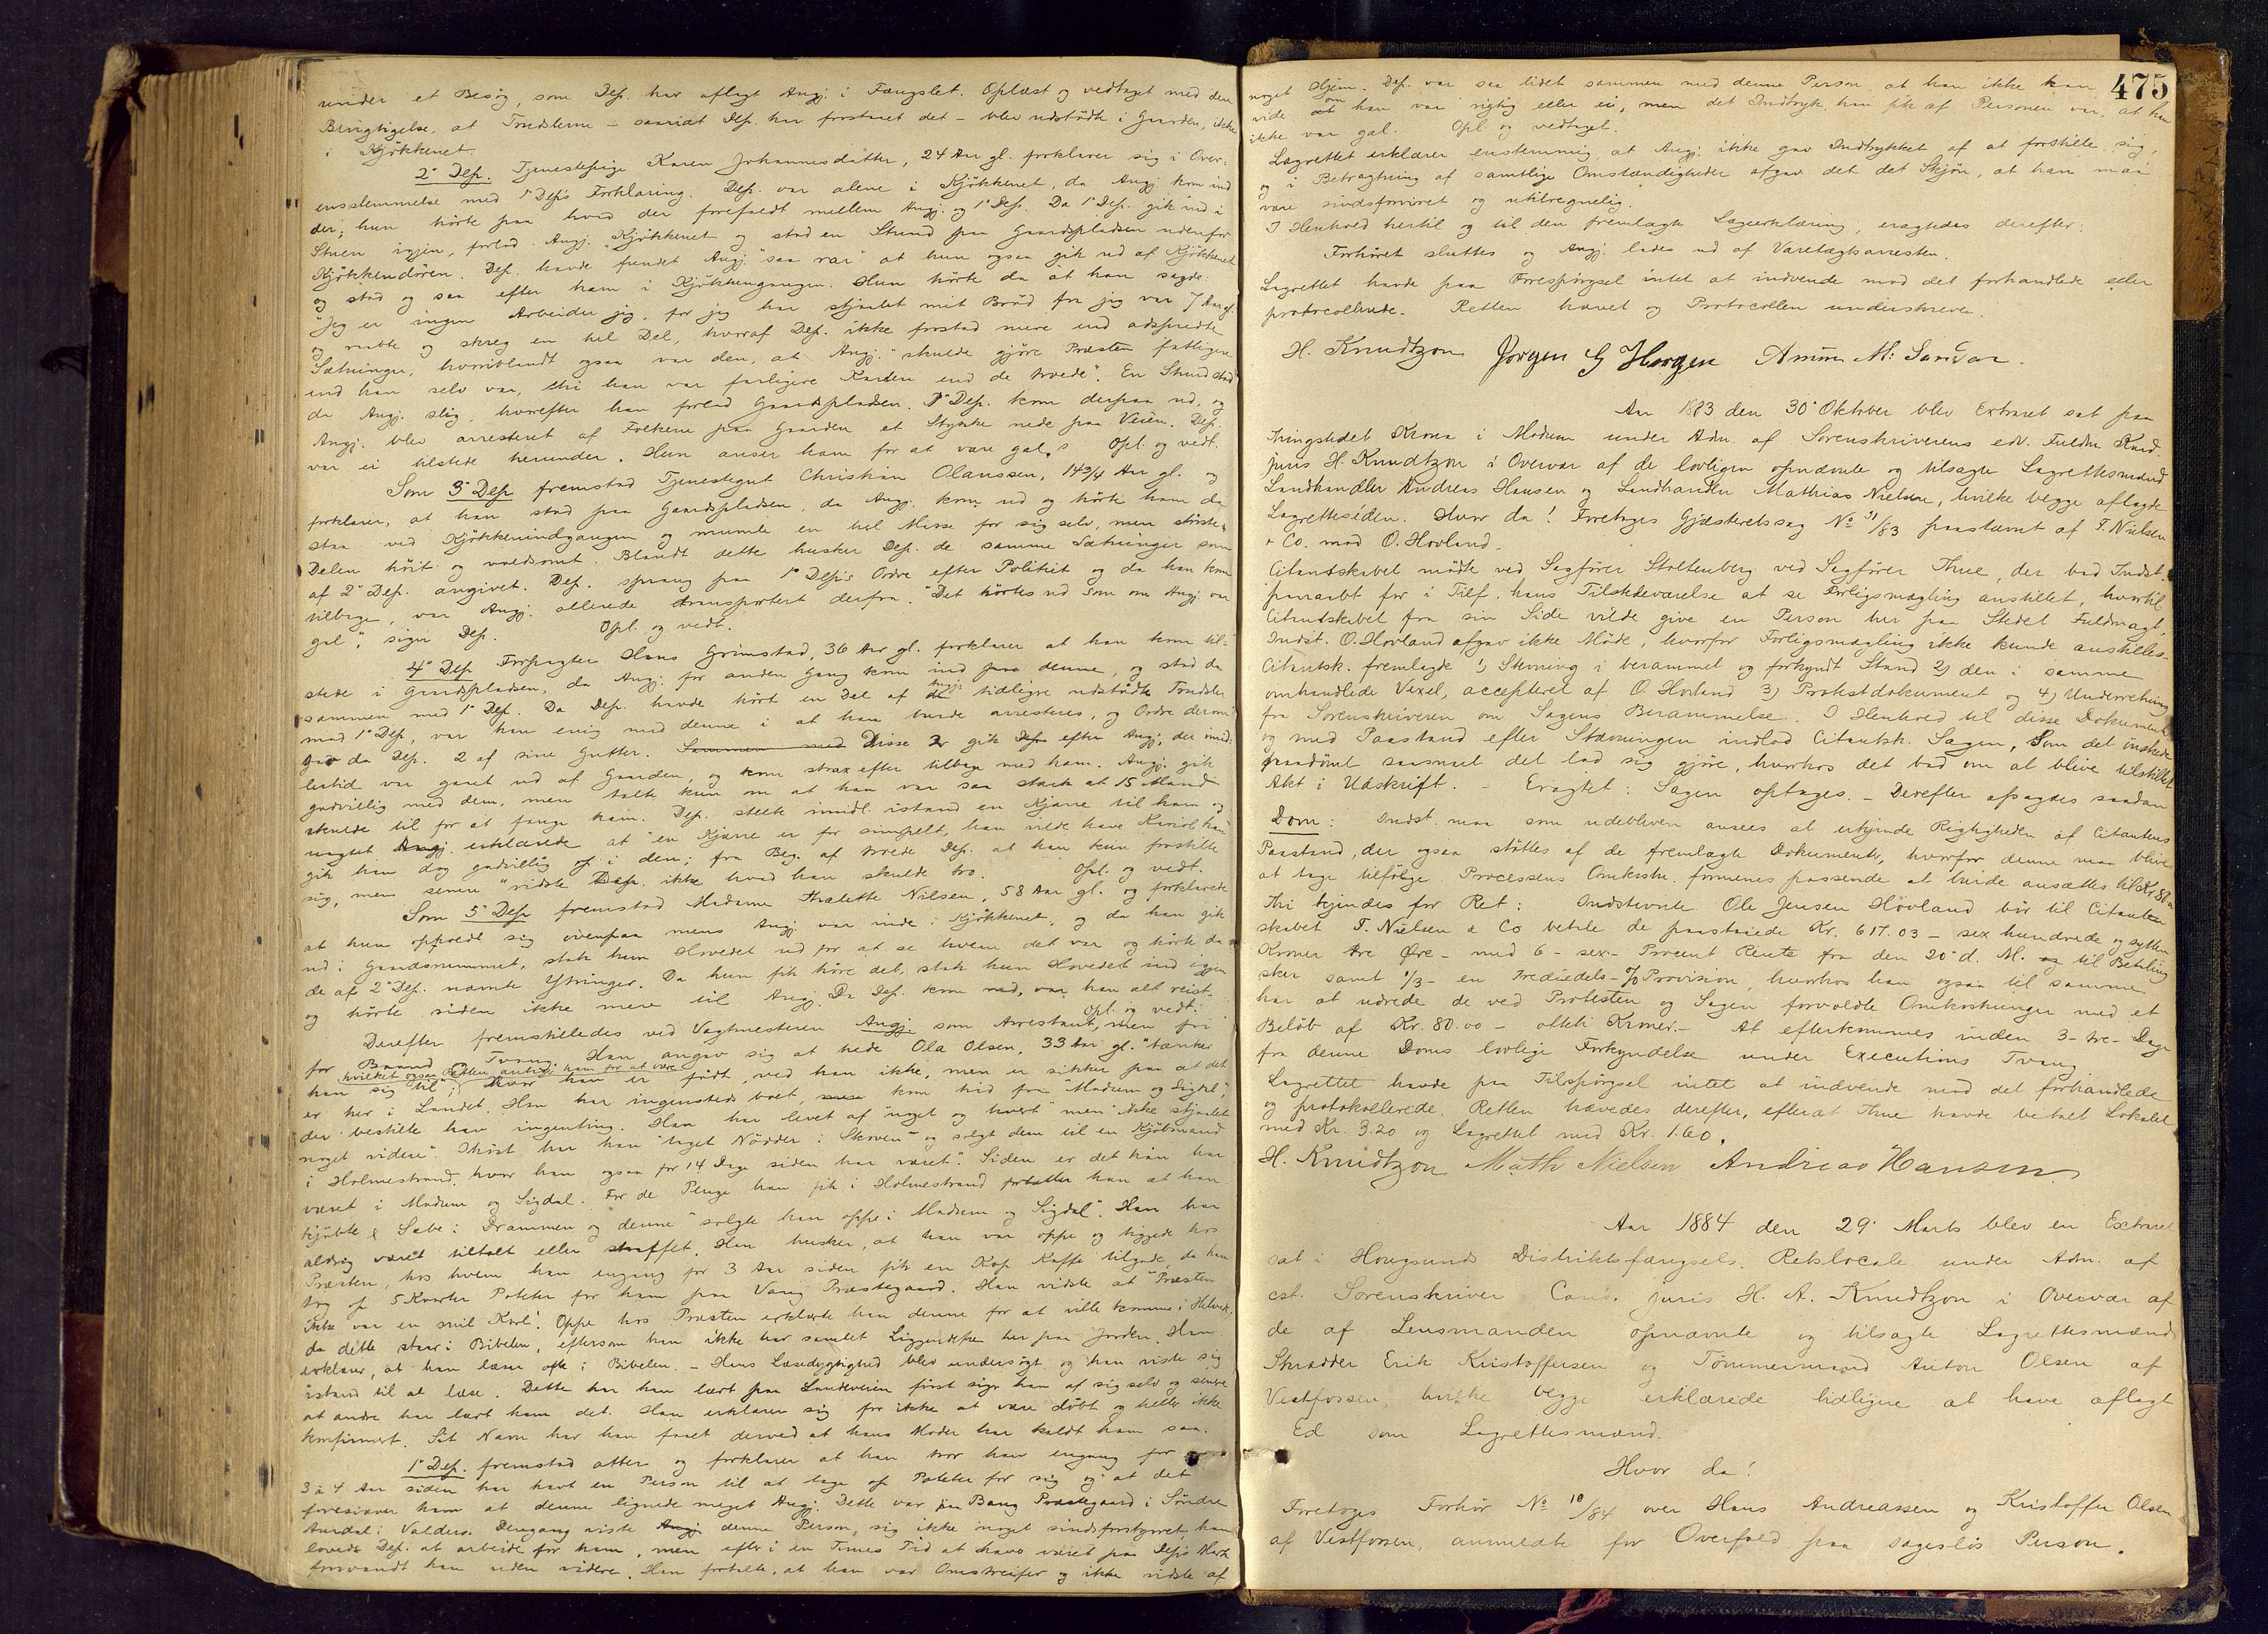 under et Besög, som Dep. har aflagt Angj. i Fængslet. Oplæst og vedtaget med den
Berigtigelse, at Trudslerne - saavidt Dep. har forstaaet det - blev udstödte i Gaarden, ikke
i Kjökkenet.
2' Dep. Tjenestepige Karen Johannesdatter, 24 Aar gl. forklarer sig i Over-
ensstemmelse med 1' Dep's Forklaring. Dep. var alene i Kjökkenet, da Angj. kom ind
der; hun hörte paa hvad der forefaldt mellem Angj. og 1' Dep. Da 1' Dep. gik ind i
Stuen igjen, forlod Angj. Kjökkenet og stod en Stund paa Gaardspladsen udenfor
Kjökkendören. Dep. havde fundet Angj. "saa rar" at hun ogsaa gik ud af Kjökkenet
og stod og saa efter ham i Kjökkengangen. Hun hörte da at han sagde:
"Jeg er ingen Arbeider jeg, for jeg har stjaalet mit Bröd fra jeg var 7 Aar gl.
og raabte og skreg en hel Del, hvoraf Dep. ikke forstod mere end adspredte
Sætninger, hvoriblandt ogsaa var den, at Angj. "skulde gjöre Præsten fattigere
end han selv var, thi han var farligere Karlen end de troede". En Stund stod
da Angj. slig, hvorefter han forlod Gaardspladsen. 1' Dep. kom derpaa ud, og
Angj. blev arresteret af Folkene paa Gaarden et Stykke nede paa Veien. Dep.
var ei tilstede herunder. Hun anser ham for at være gal. Opl. og vedt.
Som 3' Dep. fremstod Tjenestegut Christian Olaussen, 14 3/4 Aar gl. og
forklarer, at han stod paa Gaardspladsen, da Angj. kom ud og hörte ham da
staa ved Kjökkenindgangen og mumle en hel Masse for sig selv, men störste-
Delen höit og voldsomt. Blandt dette husker Dep. de samme Sætninger som
af 2' Dep. angivet. Dep. sprang paa 1' Dep's Ordre efter Politiet og da han kom
tilbage, var Angj. allerede transportert derfra. "Det hörtes ud som om Angj. var
gal", siger Dep. Opl. og vedt.
4' Dep. Forpagter Hans Grimstad, 36 Aar gl. forklarer at han kom til-
stede i Gaardspladsen, da Angj. for anden Gang kom ind paa denne, og stod da
sammen med 1' Dep. Da Dep. havde hört en Del af Angj's tidligere udstödte Trudsler
mod 1' Dep, var han enig med denne i at han burde arresteres, og Ordre derom
gav da Dep. 2 af sine Gutter. Sammen med Disse 2 gik Dep efter Angj, der imid-
lertid var gaaet ud af Gaarden, og kom strax efter tilbage med ham. Angj. gik
godvillig med dem, men talte kun om at han var saa stærk at 15 Mand
skulde til for at fange ham. Dep. stelte imidl. istand en Kjærre til ham og
uagtet Angj. erklærede at "en Kjærre er for simpelt, han vilde have Kariol han"
gik han dog godvillig op i den; fra Beg. af troede Dep. at han kun forstilte
sig, men senere "vidste Dep. ikke hvad han skulde tro. Opl. og vedt.
Som 5' Dep fremstod Madame Nilsen, 58 Aar gl. og forklarede
at hun opholdt sig ovenpaa mens Angj. var inde i Kjökkenet, og da han gik
ud i Gaardsrummet, stak hun Hovedet ud for at se hvem det var og hörte da
de af 2' Dep. nævnte Ytringer. Da hun fik höre det, stak hun Hovedet ind igjen
og hörte siden ikke mere til Angj. Da Dep. kom ned, var han alt reist.
Opl. og vedt.
Derefter fremstilledes ved Vagtmesteren Angj. som Arrestant, men fri
for Baand og Tvang. Han angav sig at hede Ola Olsen, 33 Aar gl. "tænker
han sig til", hvilket ogsaa Retten antog ham for at være. Hvor han er födt, ved han ikke, men er sikker paa at det
er her i Landet. Han har ingensteds boet, men kom hid fra "Modum og Sigdal",
der bestilte han ingenting. Han har levet af "noget og hvert" men "ikke stjaalet
noget videre". Ihöst har han "taget Nödder i Skoven" og solgt dem til en Kjöbmand
i Holmestrand, hvor han ogsaa for 14 Dage siden har været". Siden er det han har
været i Modum og Sigdal. For de Penge han fik i Holmestrand fortæller han at han
kjöbte Sæbe i Drammen og denne "solgte han oppe i Modum og Sigdal". Han har
aldrig været tiltalt eller straffet. Han husker, at han var oppe og tiggede hos
Præsten, hos hvem han engang for 3 Aar siden fik en Kop Kaffe tilgode, da han
tog op 5 Kvarter Poteter for ham paa Vang Præstegaard. Han vidste at "Præsten
ikke var en snil Karl". Oppe hos Præsten erklærte han denne for at ville komme i Helvede,
da dette staar i Bibelen, eftersom han ikke har samlet Liggendefæ her paa Jorden. Han
erklærer, at han læser ofte i Bibelen. - Hans Læsedygtighed blev undersögt, og han viste sig
istand til at læse. Dette har han lært paa Landeveien först siger han af sig selv og senere
at andre har lært ham det. Han erklærer sig for ikke at være döbt og heller ikke
konfirmert. Sit Navn har han faaet derved at hans Moder har kaldt ham saa.
1' Dep. fremstod atter og forklarer at han tror han engang for
3 à 4 Aar siden har havt en Person til at tage op Poteter for sig og at det
forekommer ham at denne lignede meget Angj. Dette var paa Bang Præstegaard i Söndre
Aurdal i Valders. Dengang viste Angj denne Person sig ikke noget sindsforstyrret, han
lovede Dep. at arbeide for ham, men efter i en Times Tid at have været paa Dep's Mark
forsvandt han uden videre. Han fortalte, at han var Omstreifer og ikke vidste af
475
noget Hjem. Dep. var saa lidet sammen med denne Person, at han ikke kan
vide om han var rigtig eller ei, men det Indtryk, han fik af Personen var, at han
ikke var gal. Opl. og vedtaget.
Lagrettet erklærer enstemmig, at Angj. ikke gav Indtrykket af at forstille sig,
og i Betragtning af samtlige Omstændigheder afgav det det Skjön, at han maa
være sindsforvirret og utilregnelig.
I Henhold hertil og til den fremlagte Lægeerklæring, eragtedes derefter:
Forhöret sluttes og Angj. lades ud af Varetægtsarresten.
Lagrettet havde paa Forespörgsel intet at indvende mod det forhandlede eller
protocollerede. Retten hævet og Protocollen underskreven.
H. Knudtzon Jørgen G Horgen Amun M: Sandar.
Aar 1883 den 30' Oktober blev Extraret sat paa
Thingstedet Krona i Modum under Adm. af Sorenskriverens edv. Fuldm Kand.
juris H. Knudtzon i Overvær af de lovligen opnævnte og tilsagte Lagrettesmænd
Landhandler Andreas Hansen og Landhandler Mathias Nielsen, hvilke begge aflagde
Lagretteseden. Hvor da! Foretoges Gjæsteretssag No 31/83 paastævnt af F. Nielsen
& Co. mod O. Hovland.
Citantskabet mödte ved Sagförer Stoltenberg ved Sagförer Thue, der bad Indst.
paaraabt for i Tilf. hans Tilstedeværelse at se Forligsmægling anstillet, hvortil
Citantskabet fra sin Side vilde give en Person her paa Stedet Fuldmagt.
Indst. O. Hovland afgav ikke Möde, hvorfor Forligsmægling ikke kunde anstilles.
Citantsk. fremlagde 1) Stevning i berammet og forkyndt Stand 2) den i samme
omhandlede Vexel, accepteret af O. Hovland 3) Protestdokument og 4) Underretning
fra Sorenskriveren om Sagens Berammelse. I Henhold til disse Dokumenter
og med Paastand efter Stævningen indlod Citantsk. Sagen, som det önskede
paadömt saasnart det lod sig gjöre, hvorhos det bad om at blive tilstillet
Akt i Udskrift. - Eragtet: Sagen optages. - Derefter afsagdes saadan
Dom: Indst. maa som udebleven ansees at erkjende Rigtigheden af Citantens
Paastand, der ogsaa stöttes af de fremlagte Dokumenter, hvorfor denne maa blive
at tage tilfölge. Processens Omkostn. formenes passende at burde ansættes til Kr. 80.00
Thi kjendes for Ret: Indstevnte Ole Jensen Hovland bör til Citant-
skabet F. Nielsen & Co betale de paastævnte Kr. 617.03 - sex hundrede og sytten
Kroner tre Öre - med 6 - sex - Procent Rente fra den 20' d. M. og til Betaling
sker samt 1/3 - en trediedels - % Provision, hvorhos han ogsaa til samme
har at udrede de ved Protesten og Sagen forvoldte Omkostninger med et
Belöb af Kr. 80.00 - otteti Kroner. - At efterkommes inden 3 - tre - Dage
fra denne Doms lovlige Forkyndelse under Executions Tvang.
Lagrettet havde paa Tilspörgsel intet at indvende mod det forhandlede
og protokollerede. Retten hævedes derefter, efterat Thue havde betalt Lokalet
med Kr. 3.20 og Lagrettet med Kr. 1.60.
H. Knudtzon Math Nielsen Andreas Hansen
Aar 1884 den 29' Marts blev en Extraret
sat i Hougsunds Distriktsfængsels Retslocale under Adm. af
cst. Sorenskriver Cand. juris H. A. Knudtzon i Overvær af
de af Lensmanden opnævnte og tilsagte Lagrettesmænd
Skrædder Erik Kristoffersen og Tömmermand Anton Olsen af
Vestfossen, hvilke begge erklærede tidligere at have aflagt
Ed som Lagrettesmænd.
Hvor da!
Foretoges Forhör No 10/84 over Hans Andreassen og Kristoffer Olsen
af Vestfossen, anmeldte for Overfald paa sageslös Person.